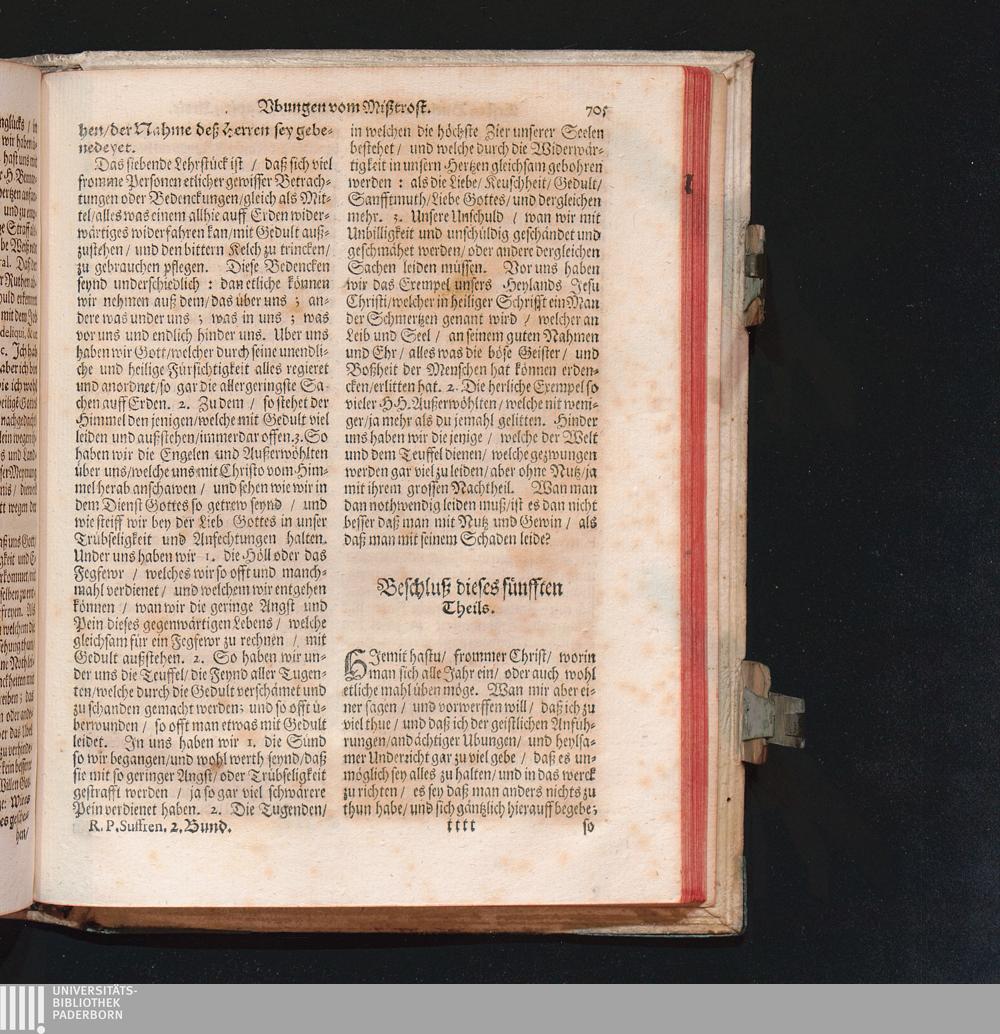 Ubungen vom Mißtrost. 705
hen/der Nahme deß Herren sey gebe-
nedeyet.
Das siebende Lehrstück ist / daß sich viel
fromme Personen etlicher gewisser Betrach-
tungen oder Bedenckungen/gleich als Mit-
tel/alles was einem allhie auff Erden wider-
wärtiges widerfahren kan/mit Gedult auß-
zustehen / und den bittern Kelch zu trincken/
zu gebrauchen pflegen. Diese Bedencken
seynd underschiedlich : dan etliche können
wir nehmen auß dem/das über uns ; an-
dere was under uns ; was in uns ; was
vor uns und endlich hinder uns. Uber uns
haben wir Gott/welcher durch seine unendli-
che und heilige Fürsichtigkeit alles regieret
und anordnet/so gar die allergeringste Sa-
chen auff Erden. 2. Zu dem / so stehet der
Himmel den jenigen/welche mit Gedult viel
leiden und außstehen/immerdar offen.3.So
haben wir die Engelen und Außerwöhlten
über uns/welche uns mit Christo vom Him-
mel herab anschawen / und sehen wie wir in
dem Dienst Gottes so getrew seynd / und
wie steiff wir bey der Lieb Gottes in unser
Trübseligkeit und Anfechtungen halten.
Under uns haben wir 1. die Höll oder das
Fegfewr / welches wir so offt und manch-
mahl verdienet / und welchem wir entgehen
können / wan wir die geringe Angst und
Pein dieses gegenwärtigen Lebens / welche
gleichsam für ein Fegfewr zu rechnen / mit
Gedult außstehen. 2. So haben wir un-
der uns die Teuffel/die Feynd aller Tugen-
ten/welche durch die Gedult verschämet und
zu schanden gemacht werden; und so offt ü-
berwunden / so offt man etwas mit Gedult
leidet. In uns haben wir 1. die Sünd
so wir begangen/und wohl werth seynd/daß
sie mit so geringer Angst/oder Trübseligkeit
gestrafft werden / ja so gar viel schwärere
Pein verdienet haben. 2. Die Tugenden/
R. P. Suffren. 2. Bund.
in welchen die höchste Zier unserer Seelen
bestehet / und welche durch die Widerwär-
tigkeit in unsern Hertzen gleichsam gebohren
werden : als die Liebe/ Keuschheit/ Gedult/
Sanfftmuth/Liebe Gottes/und dergleichen
mehr. 3. Unsere Unschuld / wan wir mit
Unbilligkeit und unschüldig geschändet und
geschmähet werden/oder andere dergleichen
Sachen leiden müssen. Vor uns haben
wir das Exempel unsers Heylands Jesu
Christi/welcher in heiliger Schrifft ein Man
der Schmertzen genant wird / welcher an
Leib und Seel / an seinem guten Nahmen
und Ehr / alles was die böse Geister / und
Boßheit der Menschen hat können erden-
cken/erlitten hat. 2. Die herliche Exempel so
vieler H.H. Außerwöhlten/ welche nit weni-
ger/ja mehr als du jemahl gelitten. Hinder
uns haben wir die jenige / welche der Welt
und dem Teuffel dienen/ welche gezwungen
werden gar viel zu leiden/aber ohne Nutz/ja
mit ihrem grossen Nachtheil. Wan man
dan nothwendig leiden muß/ist es dan nicht
besser daß man mit Nutz und Gewin / als
daß man mit seinem Schaden leide?
Beschluß dieses fünfften
Theils.
HJemit hastu/ frommer Christ/ worin
man sich alle Jahr ein/ oder auch wohl
etliche mahl üben möge. Wan mir aber ei-
ner sagen / und vorwerffen will / daß ich zu
viel thue / und daß ich der geistlichen Anfüh-
rungen/andächtiger Ubungen/ und heylsa-
mer Underzicht gar zu viel gebe / daß es un-
möglich sey alles zu halten/ und in das werck
zu richten / es sey daß man anders nichts zu
thun habe/ und sich gäntzlich hierauff begebe;
tttt so
UNIVERSITÄTS-
BIBLIOTHEK
PADERBORN